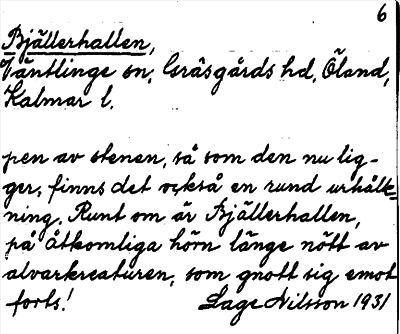 6
Bjällerhallen,
Väntlinge sn, Gräsgårds hd, Öland,
Kalmar l.
pen av stenen, så som den nu lig-
ger, finns det också en rund urhålk-
ning. Runt om är Bjällerhallen,
på åtkomliga hörn länge nött av
alvarkreaturen, som gnott sig emot
forts! Lage Nilsson 1931